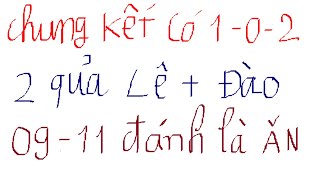 chung kết có 1-0-2
2 quả Lê + Đào
09-11 đánh là ĂN